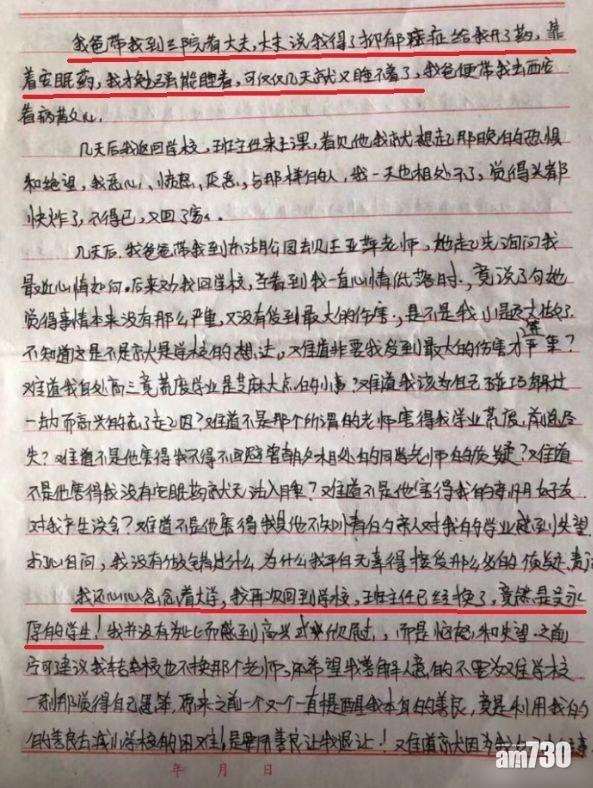 我爸带我到三院看大夫,大夫说我得了抑郁症给我开了药,靠
着安眠药,我才勉强能睡着,可仅仅几天就又睡不着了,我爸便带我去西安
看病散心。
几天后我返回学校,班主任来上课,看见他我就想起那晚的恐惧
和绝望,我恶心、愤怒、厌恶,与那样的人,我一天也相处不了,觉得头都
快炸了,不得已,又回了家。
几天后,我爸爸带我到湖公园去见王亚萍老师,她起先询问我
最近心情如何,后来劝我回学校,当看到我一直心情低落时,竟说了句她
觉得事情本来没有那么严重,又没有受到最大的伤害,是不是我小题大做了
不知道这是不是就是学校的想法,难道非要我受到最大的伤害才算严重?
难道我身处高三荒废学业是芝麻大点的小事?难道我该为自己
一劫而高兴的忘了起因?难道不是那个所谓的老师害得我学业荒废,前途尽
失?难道不是他害得我不得不回避曾朝夕相处的同学老师的质疑?难道
不是他害得我没有安眠药就无法入睡?难道不是他害得我的好友
对我产生误会?难道不是他害得我其他不知情的亲人对我的学业感到失望
扪心自问,我没有做错过什么,为什么我平白无辜得接受那么多的质疑,责
我还心心念念着大学,我再次回到学校,班主任已经换了,竟然是吴永
厚的学生!我并没有为此而感到高兴或欣慰,而是愤怒和失望。之前
宁可建议我转学校也不换那个老师,还希望我善解人意的不要为难学校
一刹那觉得自己愚笨,原来之前一个又一个直提醒我本自的善良,竟是利用我的
的善良去减小学校的困难,是要用善良让我退让!难道就因为我
年 月 日
am730